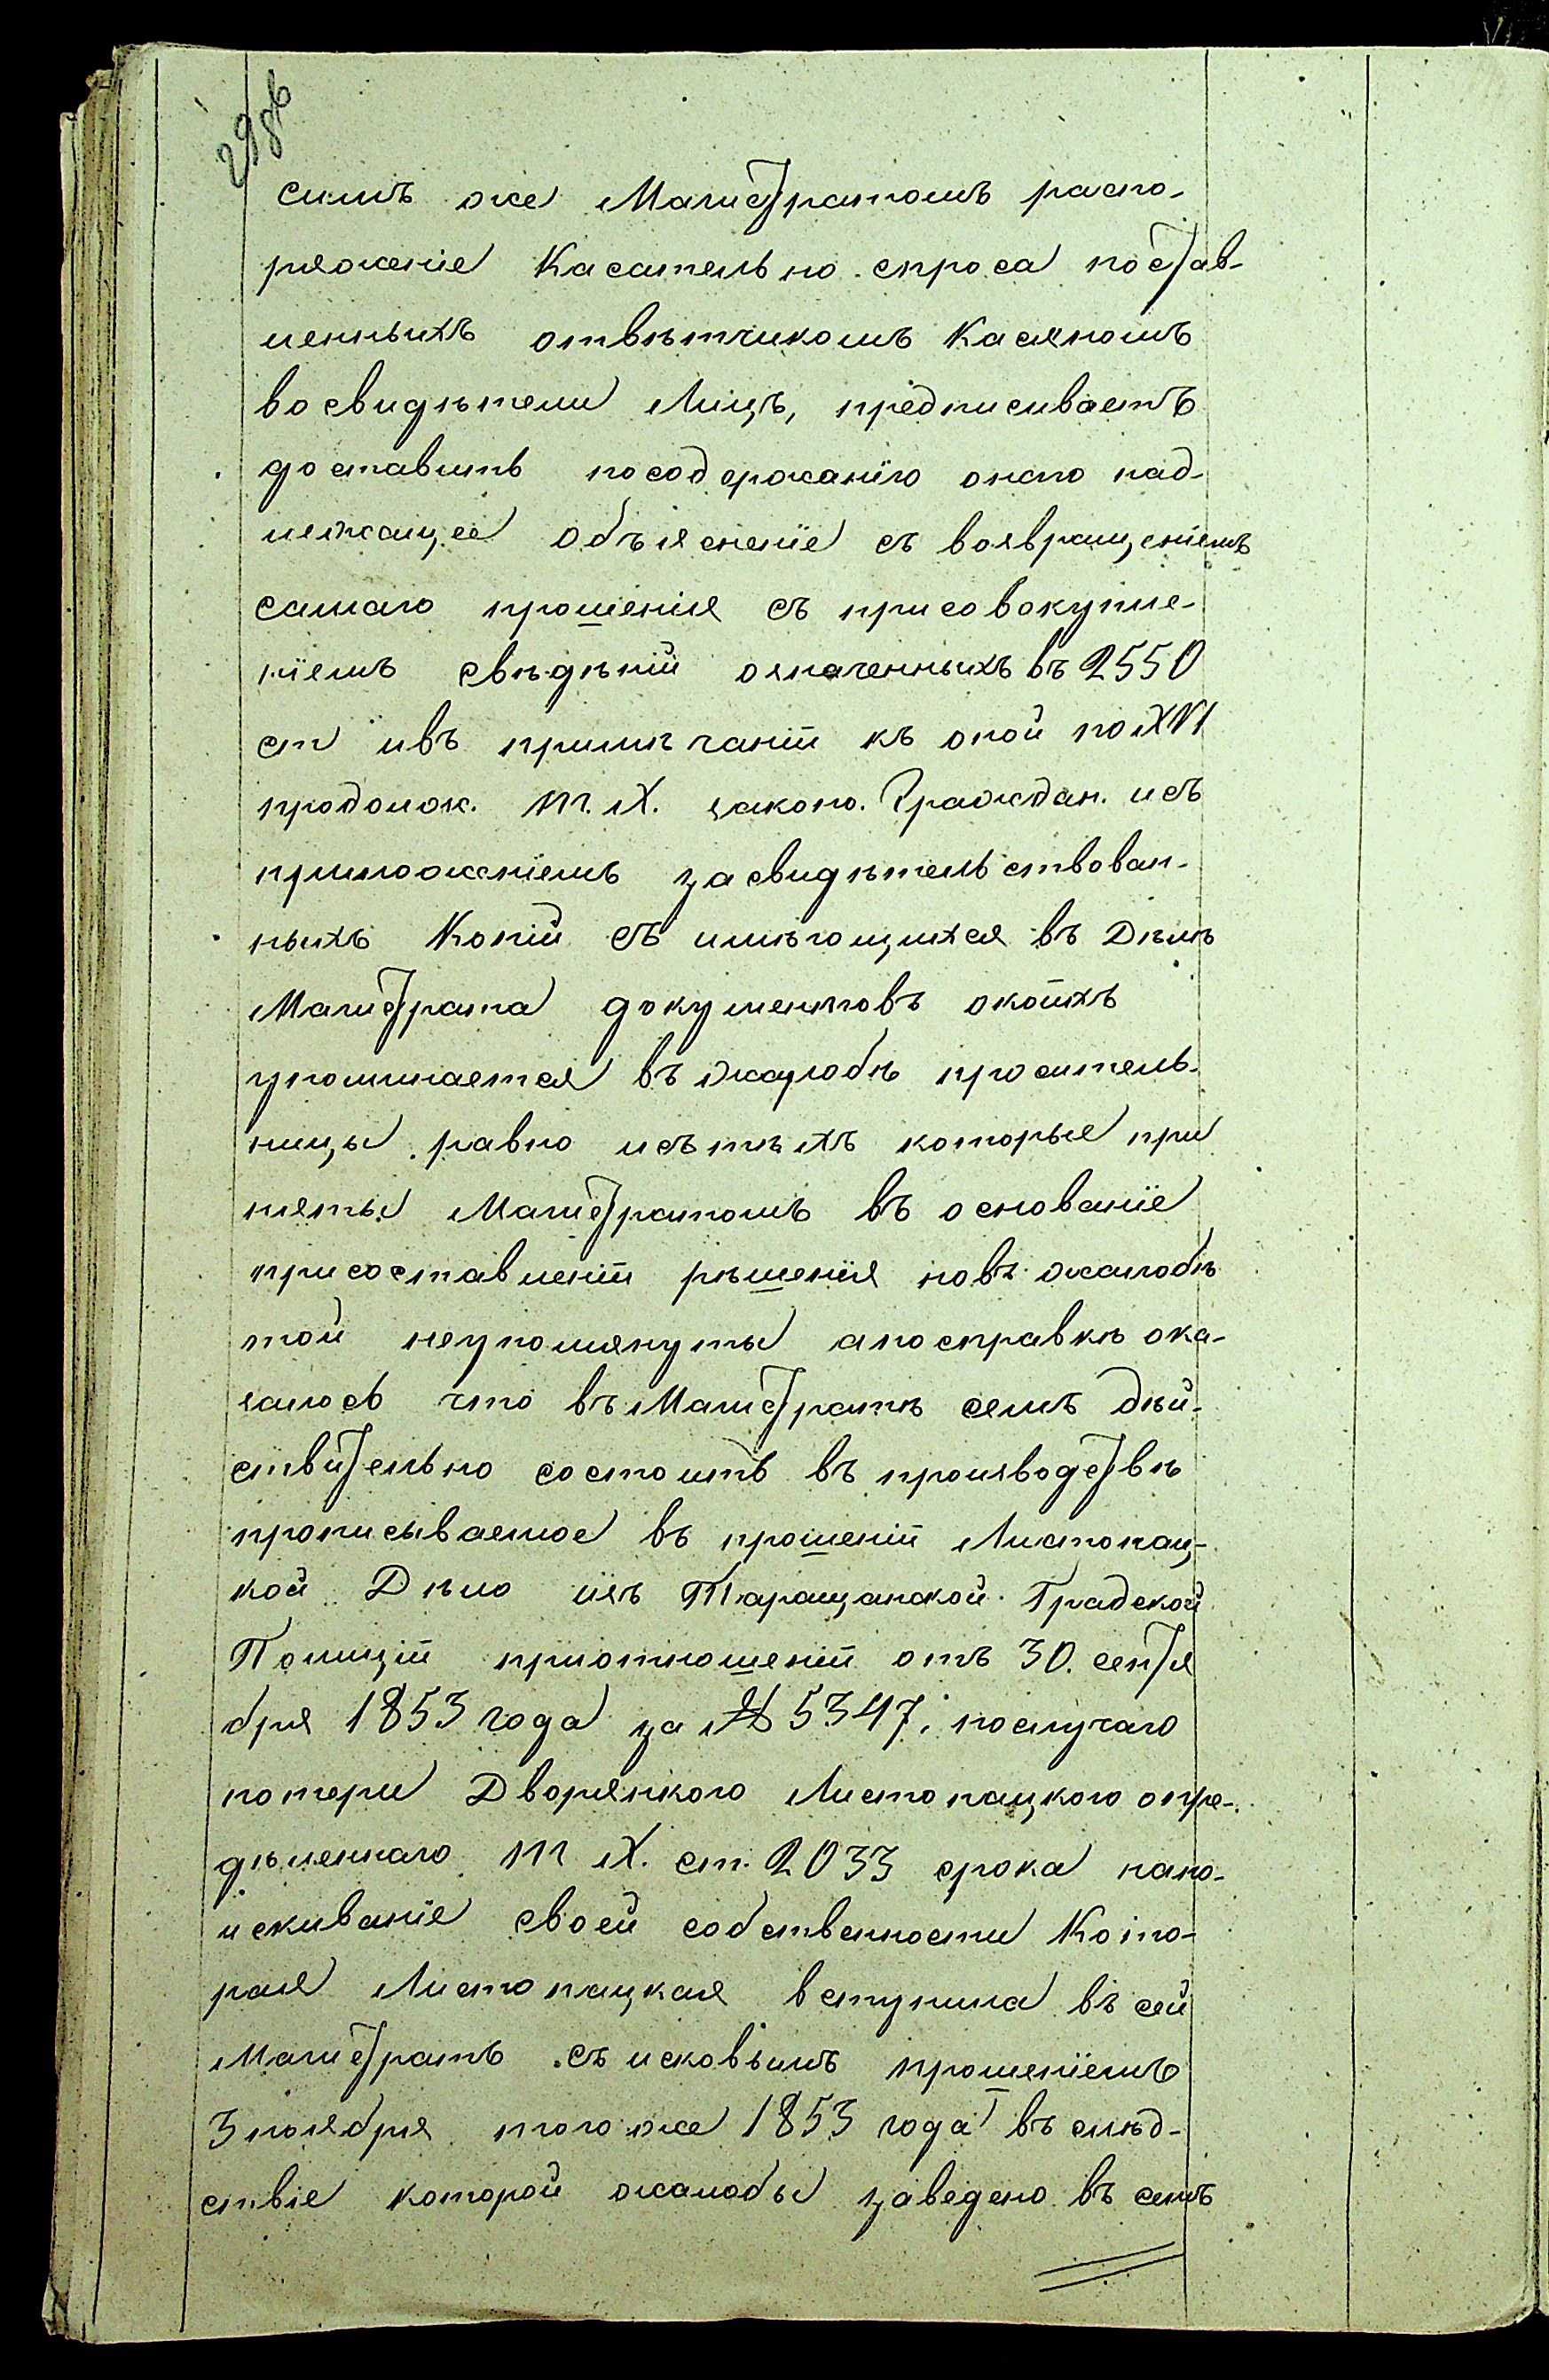 29 об
симъ же Магистратомъ распо-
ряженіе Касательно спроса постав-
ленныхъ отвѣтчикомъ Касяномъ
во свидѣтели Лицъ, предписиваетъ
доставить посодержанію онаго над-
лежащее Объясненіе съ возвращеніемъ
самаго прошенія съ присовокупле-
ніемъ свѣдѣній означенныхъ въ 2550
ст ивъ примѣчаніи къ оной по XVI
продолж. т. X. законо. Граждан. исъ
приложеніемъ засвидѣтельствован-
ныхъ Копій съ имѣющихся въ Дѣлѣ
Магистрата документовъ окоихъ
упоминается въ жалобѣ проситель-
ницы равно исъ тѣхъ которые при
няты Магистратомъ въ основаніе
присоставленіи рѣшенія новъ жалобѣ
той неупомянуты апосправкѣ ока-
залось что въ Магистратѣ семъ дѣй-
ствительно состоитъ въ производствѣ
прописываемое въ прошеніи Листопац-
кой Дѣло изъ Таращанской Градской
Полиціи приотношеніи отъ 30. сентя
бря 1853 года за № 5347. послучаю
потери Дворянкою Листопацкою опре-
дѣленнаго т X. ст. 2033 срока напо-
искиваніе своей собственности Кото-
рая Листопацкая вступила въ сей
Магистратъ съ исковымъ прошеніемъ
3 ноября того же 1853 года въ слѣд-
ствіе которой жалобы заведено въ семъ